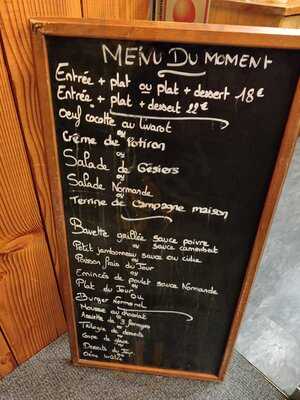 MENU DU MOMENT
Entrée + plat ou plat + dessert 18€
Entrée + plat + dessert 22€
Oeuf cocotte au livarot
ou
Crème du Potiron
ou
Salade de Gésiers
ou
Salade Normande
ou
Terrine de Campagne maison
Bavette grillée sauce poivre
ou sauce camembert
Petit jambonneau sauce au cidre
Poisson frais du Jour
Emincés de poulet sauce Normande
Plat du Jour ou
Burger
Mousse au chocolat
ou
Assiette de 3 fromages
ou
Trilogie de desserts
ou
Coupe de glace
ou
Desserts du Jour
ou
Crème brûlée